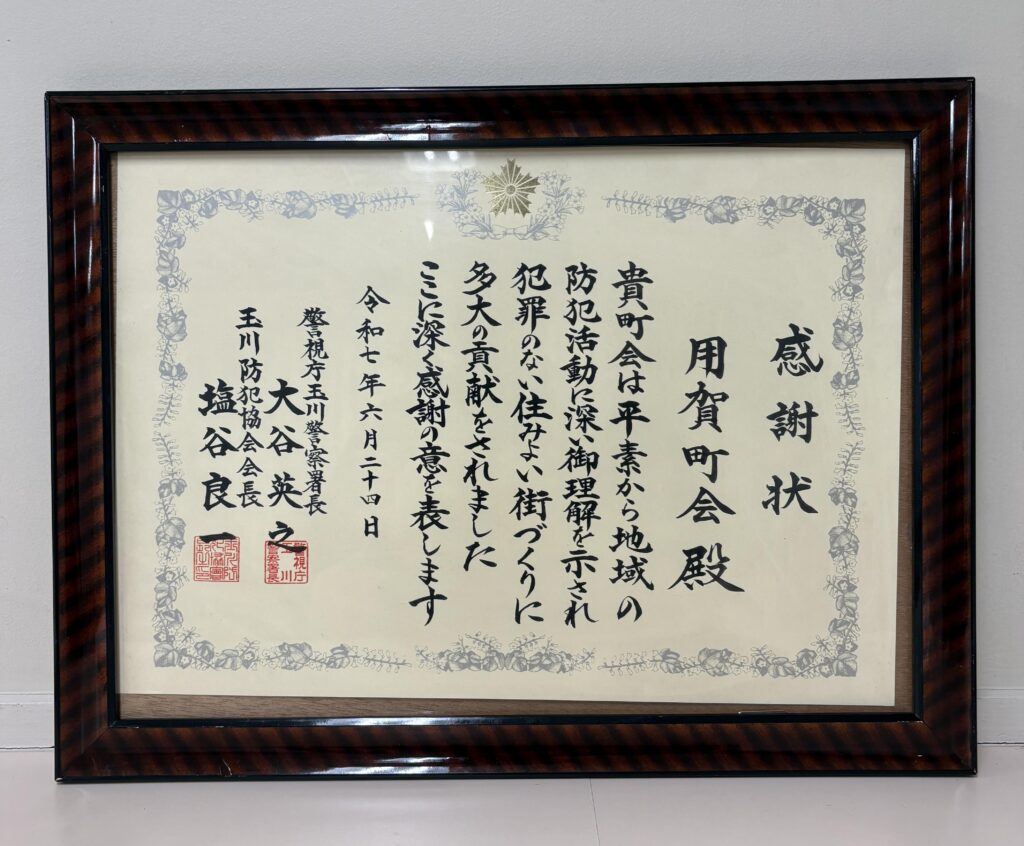 感謝状
用賀町会殿
貴町会は平素から地域の
防犯活動に深い御理解を示され
犯罪のない住みよい街づくりに
多大の貢献をされました
ここに深く感謝の意を表します
令和七年六月二十四日
警視庁玉川警察署長
大谷英之
玉川防犯協会会長
塩谷良一